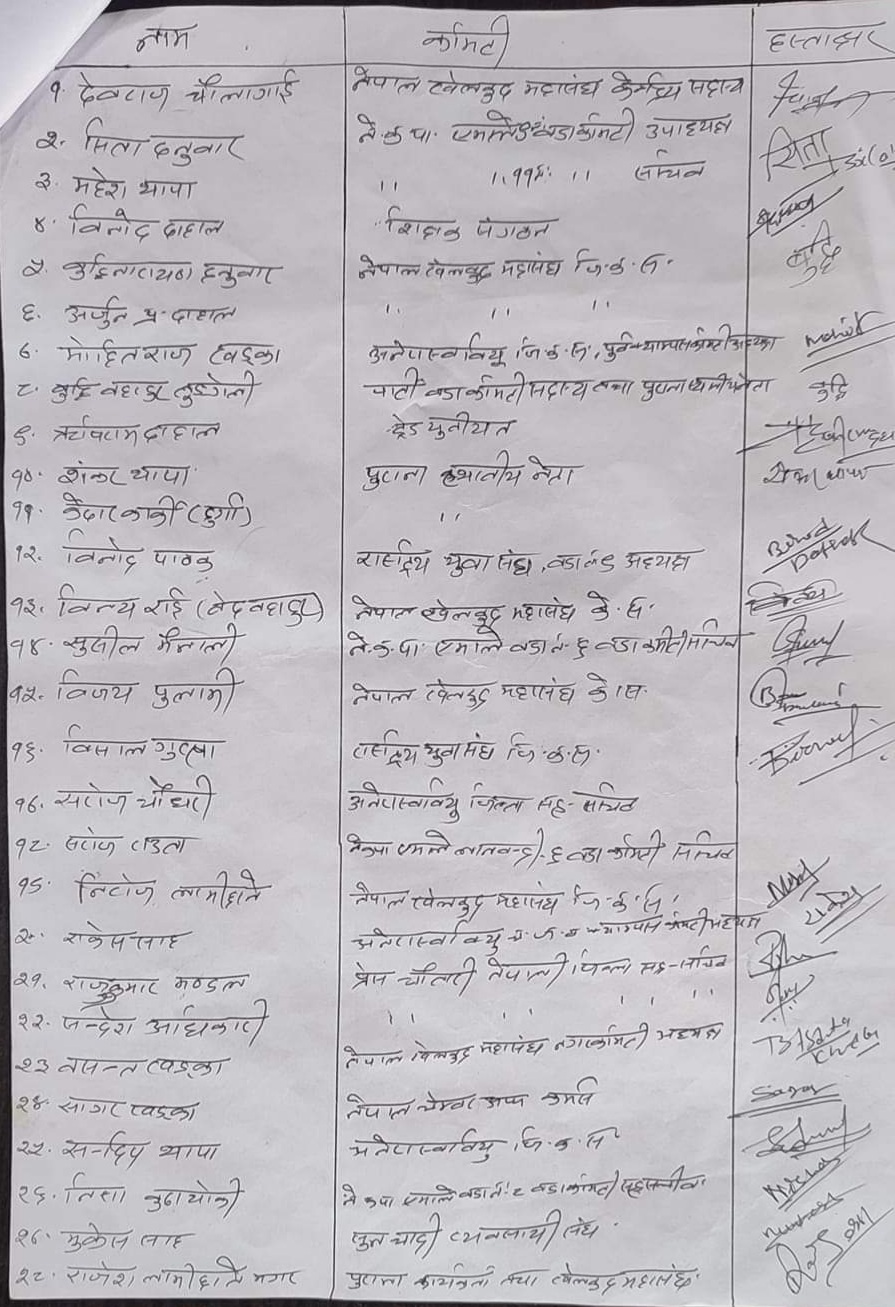 नाम कमिटी हस्ताक्षर
१. देवराज चौलागाई नेपाल खेलकुद महासंघ केन्द्रिय सदस्य
२. सिता दनुवार ने.क.पा. एमाले वडा कमिटी उपाध्यक्ष सिता
३. महेश थापा " " सचिव
४. विनोद दाहाल शिक्षक संगठन
५. बुद्धिनारायण दनुवार नेपाल खेलकुद महासंघ जि.क.स. बुद्धि
६. अर्जुन प्र. दाहाल " " "
७. मोहितराज खड्का अनेरास्ववियु जि.क.स., पुर्व क्याम्पस कमिटी अध्यक्ष Mohit
८. बुद्धि बहादुर तुङगेली पार्टी वडा कमिटी सदस्य तथा पुराना स्थानीय नेता बुद्धि
९. दाहाल ट्रेड युनीयन
१०. शंकर थापा पुराना स्थानीय नेता
११. केदार कार्की (दुर्गा) "
१२. विनोद पाठक राष्ट्रिय युवा संघ, वडा अध्यक्ष Binod Pathak
१३. विनय राई (वेदबहादुर) नेपाल खेलकुद महासंघ के.स.
१४. सुसील मैनाली ने.क.पा. एमाले वडा नं. ६ वडा कमिटी सचिव
१५. विजय पुलामी नेपाल खेलकुद महासंघ के.स.
१६. विसाल गुरुङ राष्ट्रिय युवा संघ जि.क.स.
१७. सरोज चौधरी अनेरास्ववियु जिल्ला सह-सचिव
१८. सरोज राउत नेकपा एमाले ६ वडा कमिटी सचिव
१९. निरोज लामीछाने नेपाल खेलकुद महासंघ जि.क.स.
२०. राकेस साह अनेरास्ववियु क्याम्पस कमिटी अध्यक्ष राकेश
२१. राजकुमार मण्डल प्रेस चौतारी नेपाली जिल्ला सह-सचिव
२२. सन्देश अधिकारी " " " "
२३ वसन्त खड्का नेपाल खेलकुद महासंघ नगर कमिटी अध्यक्ष
२४. सागर खड्का नेपाल चेम्बर अफ कमर्स Sagar
२५. सन्दिप थापा अनेरास्ववियु जि.क.स
२६. निशा बुढाथोकी नेकपा एमाले वडा नं. ८ वडा कमिटी
२७. मुकेस साह सुन चादी व्यवसायी संघ
२८. राजेश लामीछाने मगर पुराना कार्यकर्ता तथा खेलकुद महासंघ